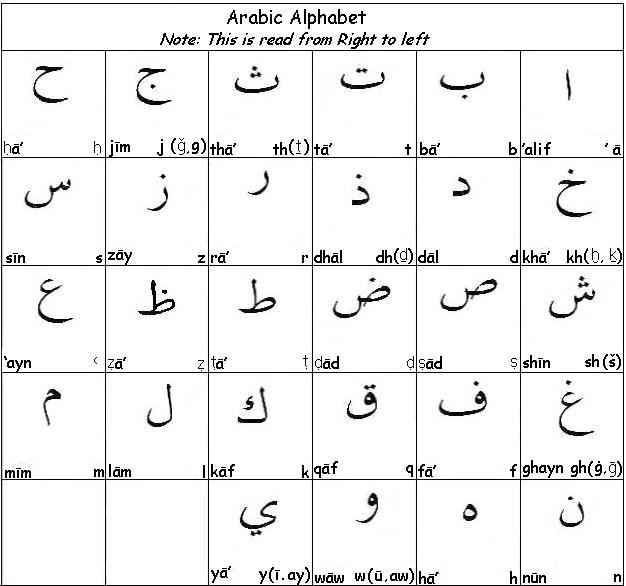 Arabic Alphabet
Note: This is read from Right to left
ا ب ت ث ج ح
ḥā’ ḥ jīm j (ğ,g) thā’ th(ṯ) tā’ t bā’ b ’alif ’ ā
خ د ذ ر ز س
sīn s zāy z rā’ r dhāl dh(ḏ) dāl d khā’ kh(ḫ, ḵ)
ش ص ض ط ظ ع
‘ayn ‘ ẓā’ ẓ ṭā’ ṭ ḍād ḍ ṣād ṣ shīn sh(š)
غ ف ق ك ل م
mīm m lām l kāf k qāf q fā’ f ghayn gh(ġ,ḡ)
ن ه و ي
yā’ y(ī.ay) wāw w(ū,aw) hā’ h nūn n